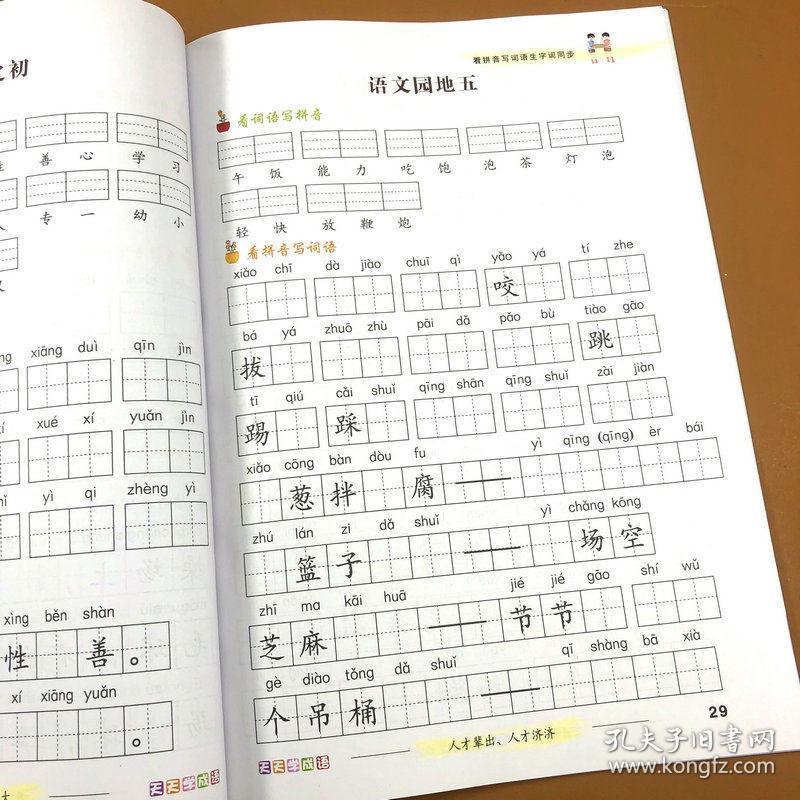 之初
善 心 学 习
专 一 幼 小
xiāng duì qīn jìn
xué xí yuǎn jìn
yì qi zhèng yì
xìng běn shàn
性 善 。
xí xiāng yuǎn
。
天天学成语
看拼音写词语生字词同步
语文园地五
看词语写拼音
午 饭 能 力 吃 饱 泡 茶 灯 泡
轻 快 放 鞭 炮
看拼音写词语
xiǎo chī dà jiào chuī qì yǎo yá tí zhe
咬
bá yá zhuō zhù pāi dǎ pǎo bù tiào gāo
拔 跳
tī qiú cǎi shuǐ qīng shān qīng shuǐ zài jiàn
踢 踩
xiǎo cōng bàn dòu fu yì qīng (qīng) èr bái
葱 拌 腐 ——
zhú lán zi dǎ shuǐ yì chǎng kōng
篮 子 —— 场 空
zhī ma kāi huā jié jié gāo shí wǔ
芝 麻 —— 节 节
gè diào tǒng dǎ shuǐ qī shàng bā xià
个 吊 桶 ——
29
人才辈出、人才济济
天天学成语
孔夫子旧书网
www.kongfz.com